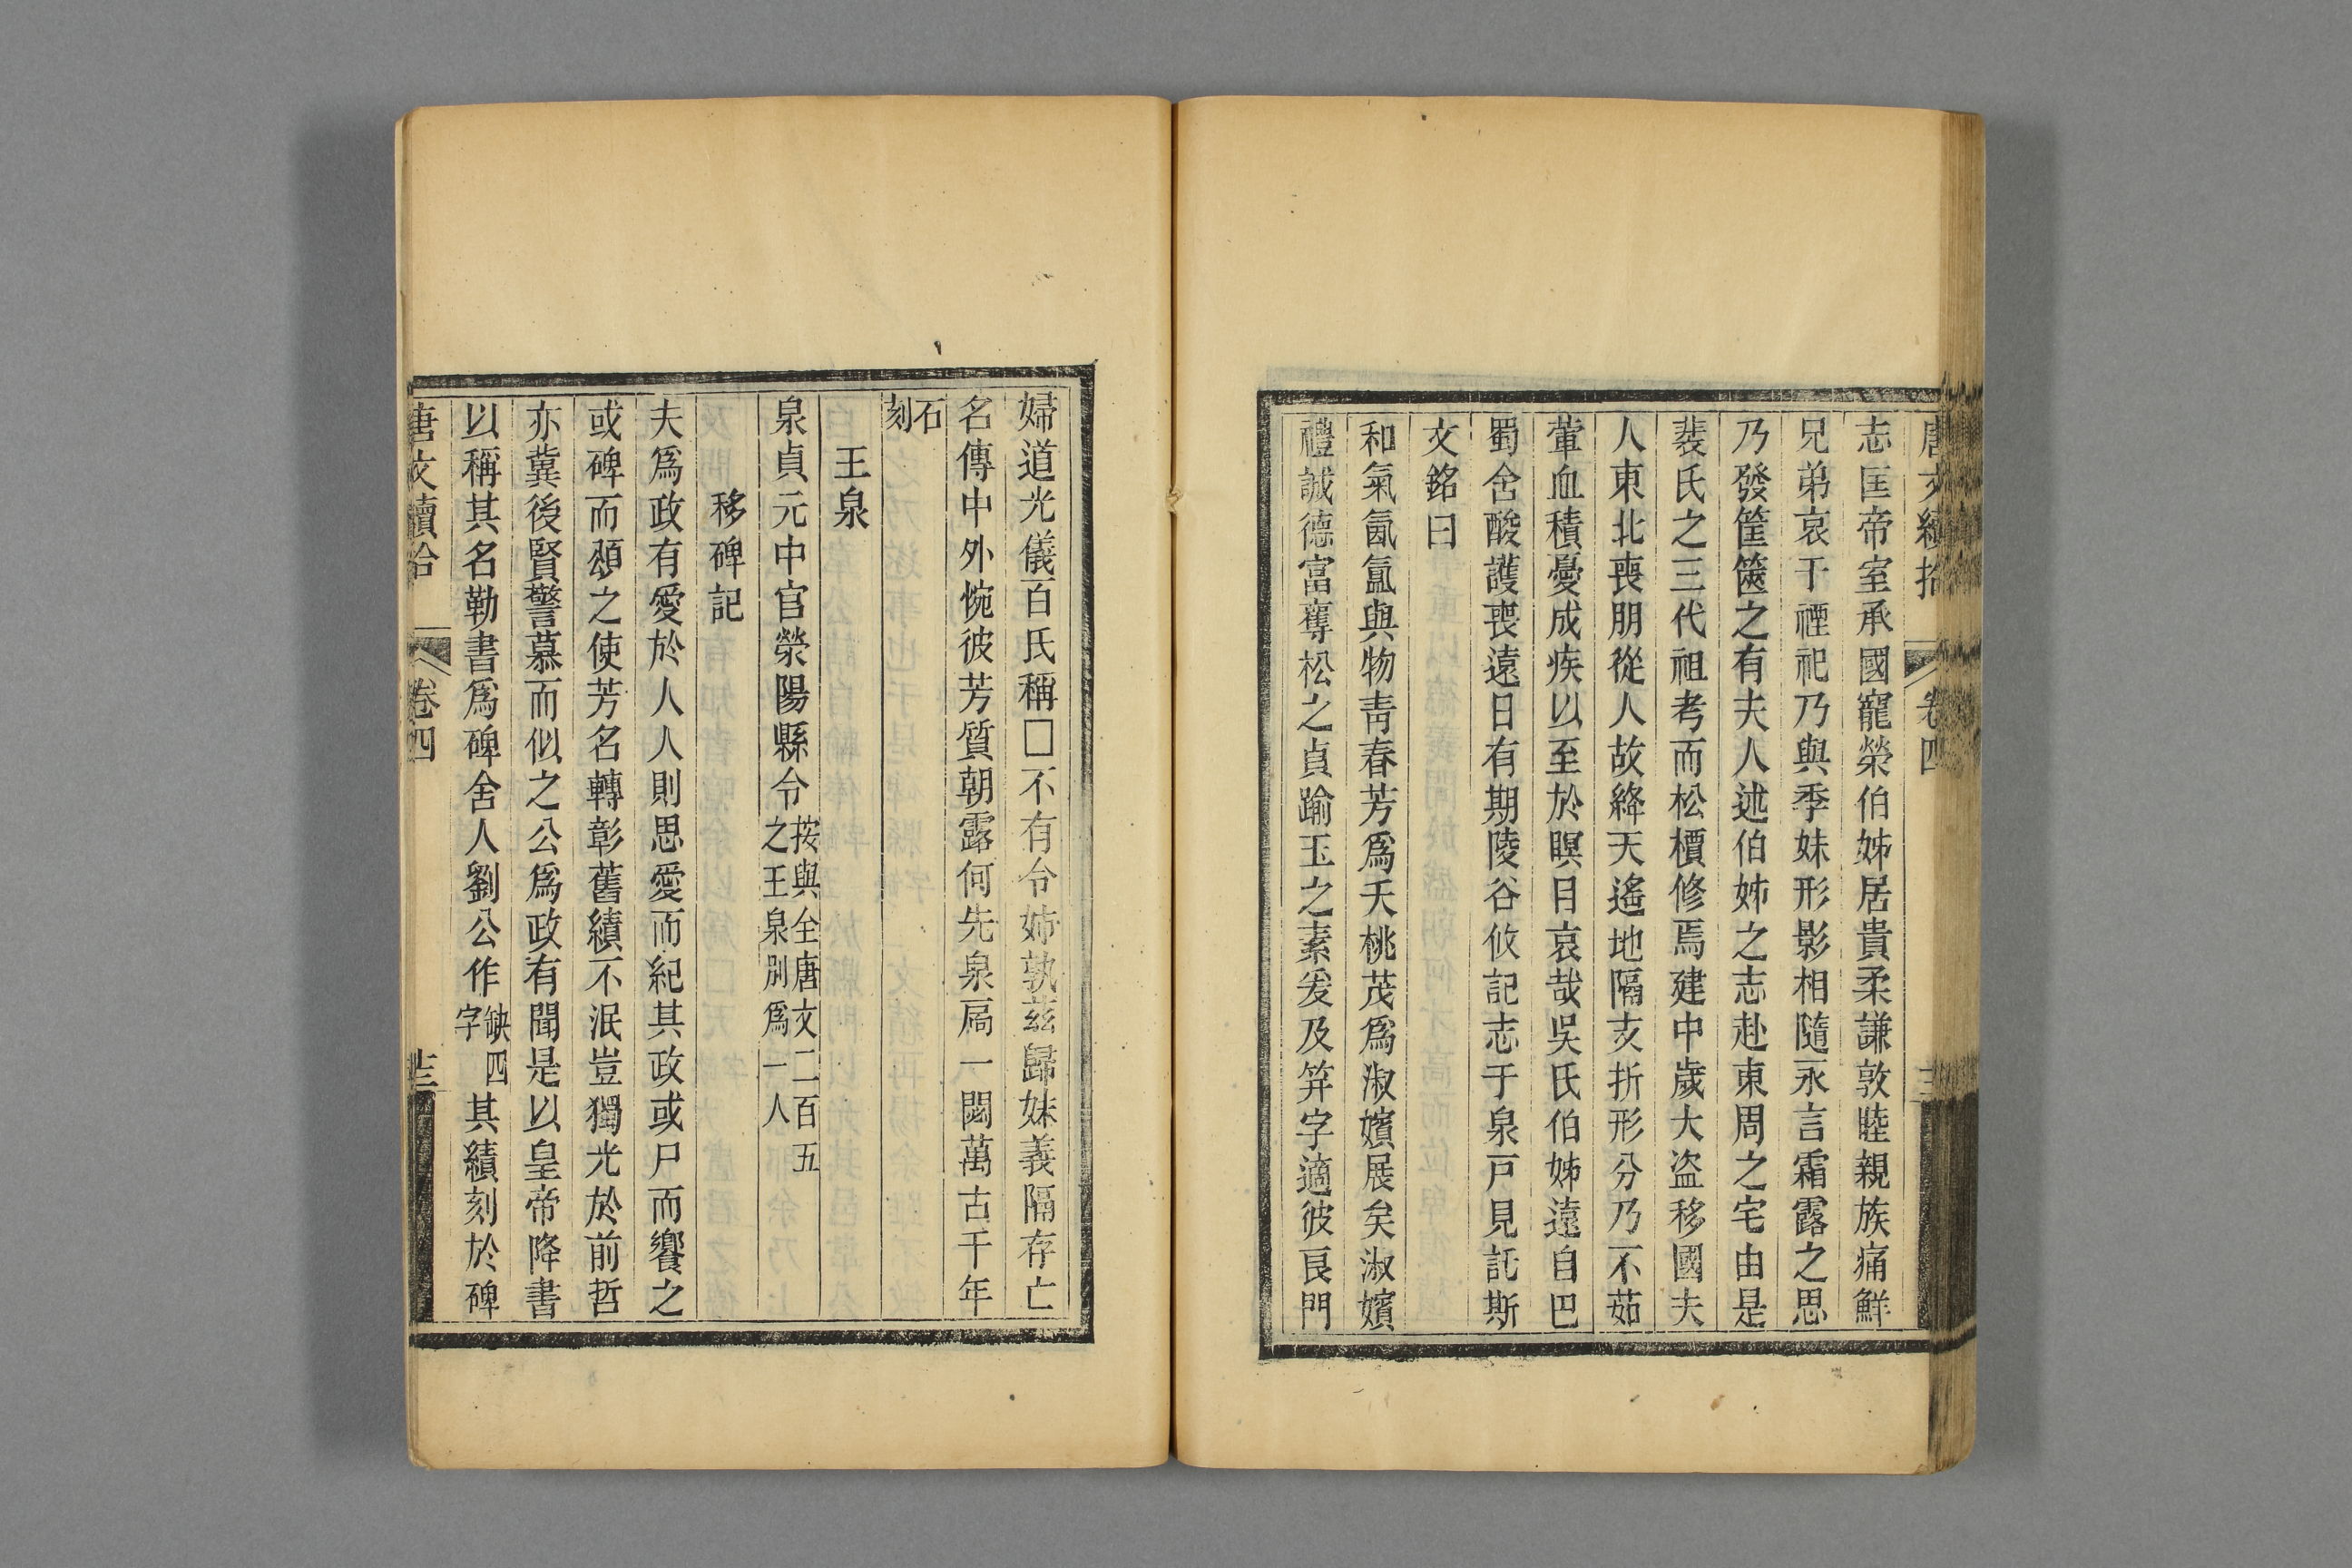 唐文續拾 卷四 十二
志匡帝室承國寵榮伯姊居貴柔謙敦睦親族痛鮮
兄弟哀于禋祀乃與季妹形影相隨永言霜露之思
乃發筐篋之有夫人述伯姊之志赴東周之宅由是
裴氏之三代祖考而松檟修焉建中歲大盜移國夫
人東北喪朋從人故絳天遙地隔支折形分乃不茹
葷血積憂成疾以至於瞑目哀哉吳氏伯姊遠自巴
蜀含酸護喪遠日有期陵谷攸記志于泉戸見託斯
文銘曰
和氣氤氳與物靑春芳爲夭桃茂爲淑嬪展矣淑嬪
禮誠德富蕣松之貞踰玉之素爰及笄字適彼良門
婦道光儀百氏稱□不有令姊孰茲歸妹義隔存亡
名傳中外惋彼芳質朝露何先泉扃一閟萬古千年
石刻
王泉
泉貞元中官滎陽縣令按與全唐文二百五之王泉別爲一人
移碑記
夫爲政有愛於人人則思愛而紀其政或尸而饗之
或碑而頌之使芳名轉彰舊績不泯豈獨光於前哲
亦冀後賢警慕而似之公爲政有聞是以皇帝降書
以稱其名勒書爲碑舍人劉公作缺四字其績刻於碑
唐文續拾 卷四 十三